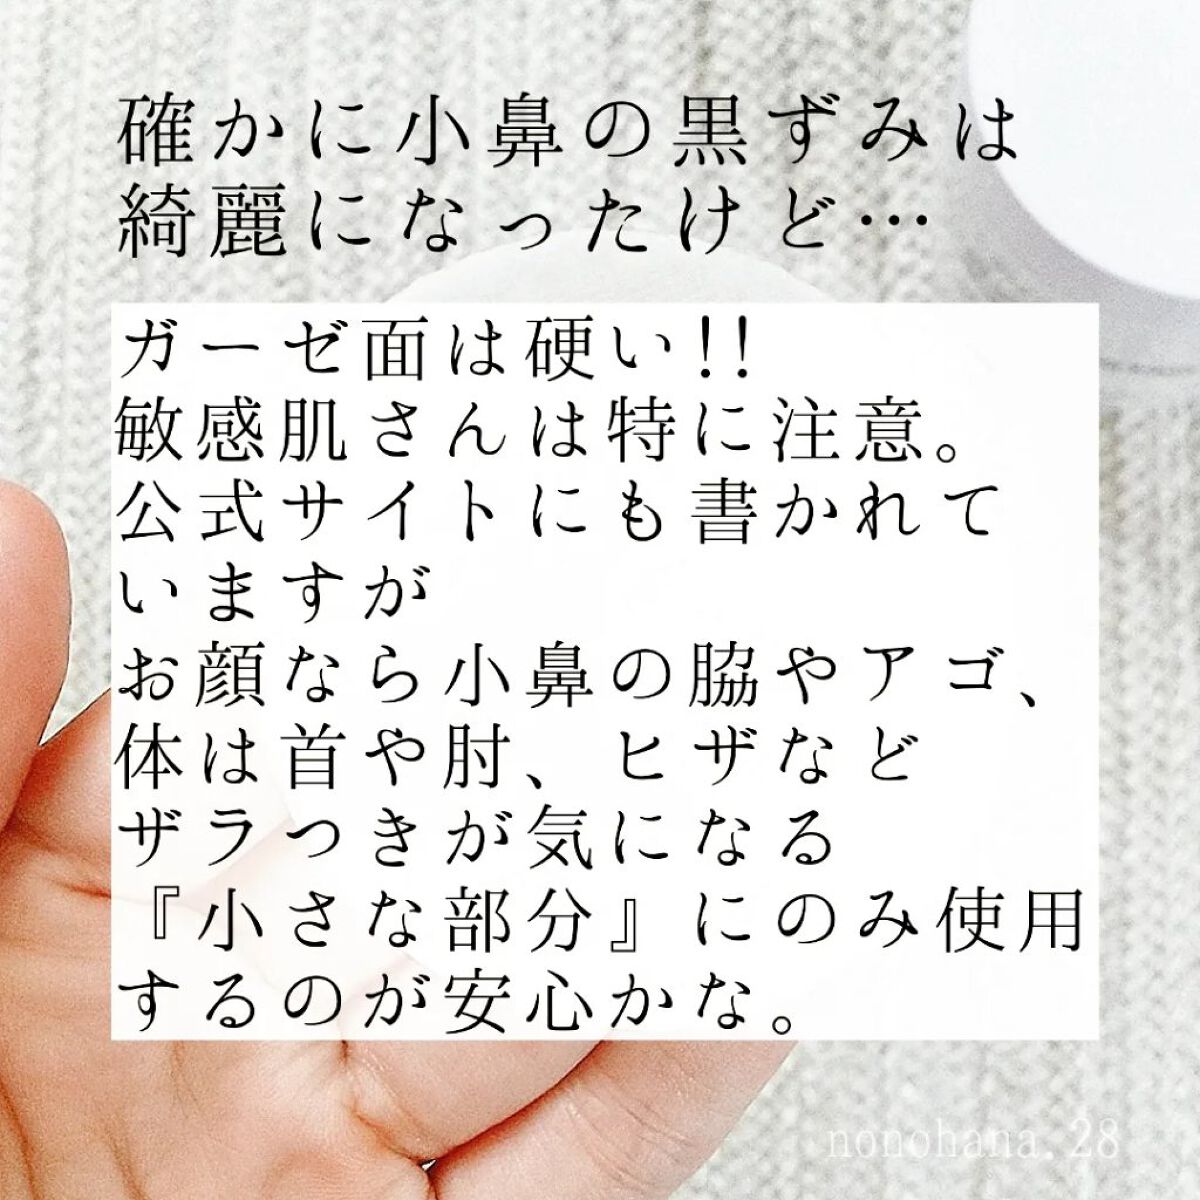 確かに小鼻の黒ずみは
綺麗になったけど…
ガーゼ面は硬い!!
敏感肌さんは特に注意。
公式サイトにも書かれて
いますが
お顔なら小鼻の脇やアゴ、
体は首や肘、ヒザなど
ザラつきが気になる
『小さな部分』にのみ使用
するのが安心かな。
nonohana.28